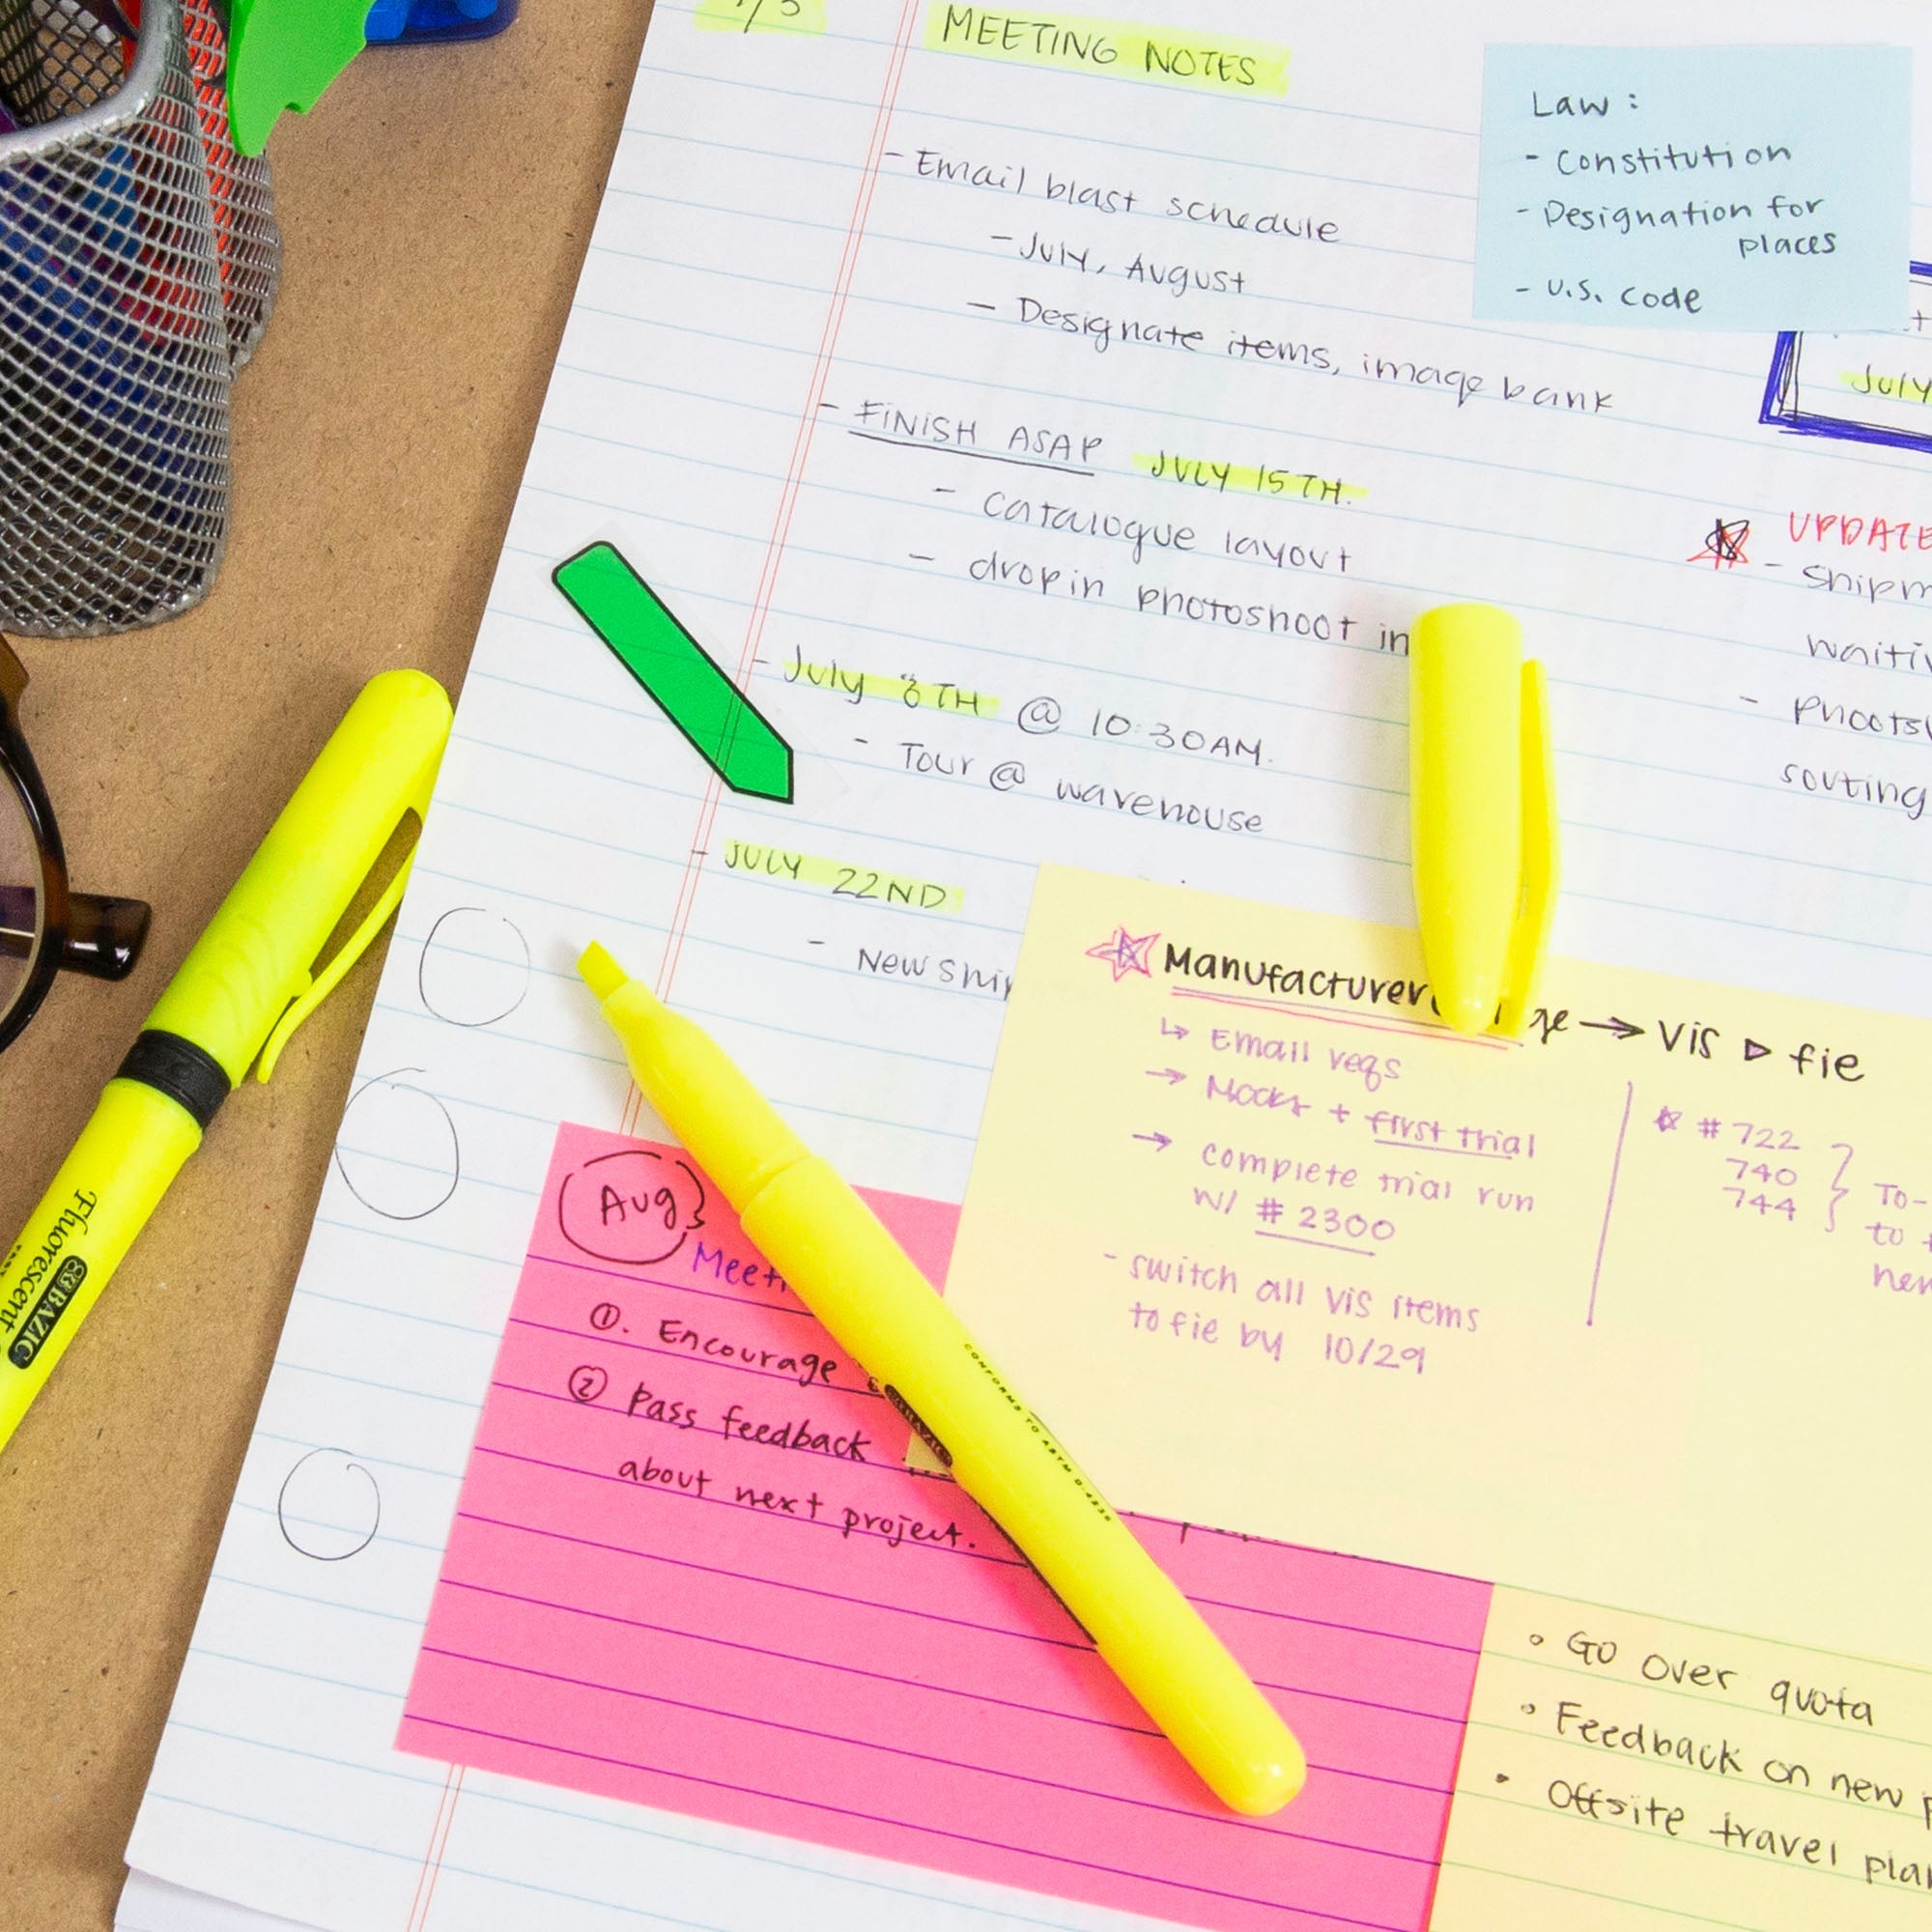 MEETING NOTES
- Email blast schedule
- July, August
- Designate items, image bank
- FINISH ASAP JULY 15TH.
- Catalogue layout
- drop in photoshoot in
- July 8TH @ 10:30AM.
- Tour @ warehouse
- JULY 22ND
- New
Law :
- Constitution
- Designation for
places
- U.S. Code
July
UPDATE
-
-
Manufacturer → Vis ▷ fie
↳ Email reqs
→ Mocks + first trial
→ complete trial run
w/ # 2300
- switch all vis items
to fie by 10/29
# 722
740
744
To-
to
Aug
①. Encourage
② Pass feedback
about next project.
◦ Go over quota
◦ Feedback on new
• Offsite travel
Fluorescent
BAZIC
CONFORMS TO ASTM D-4236